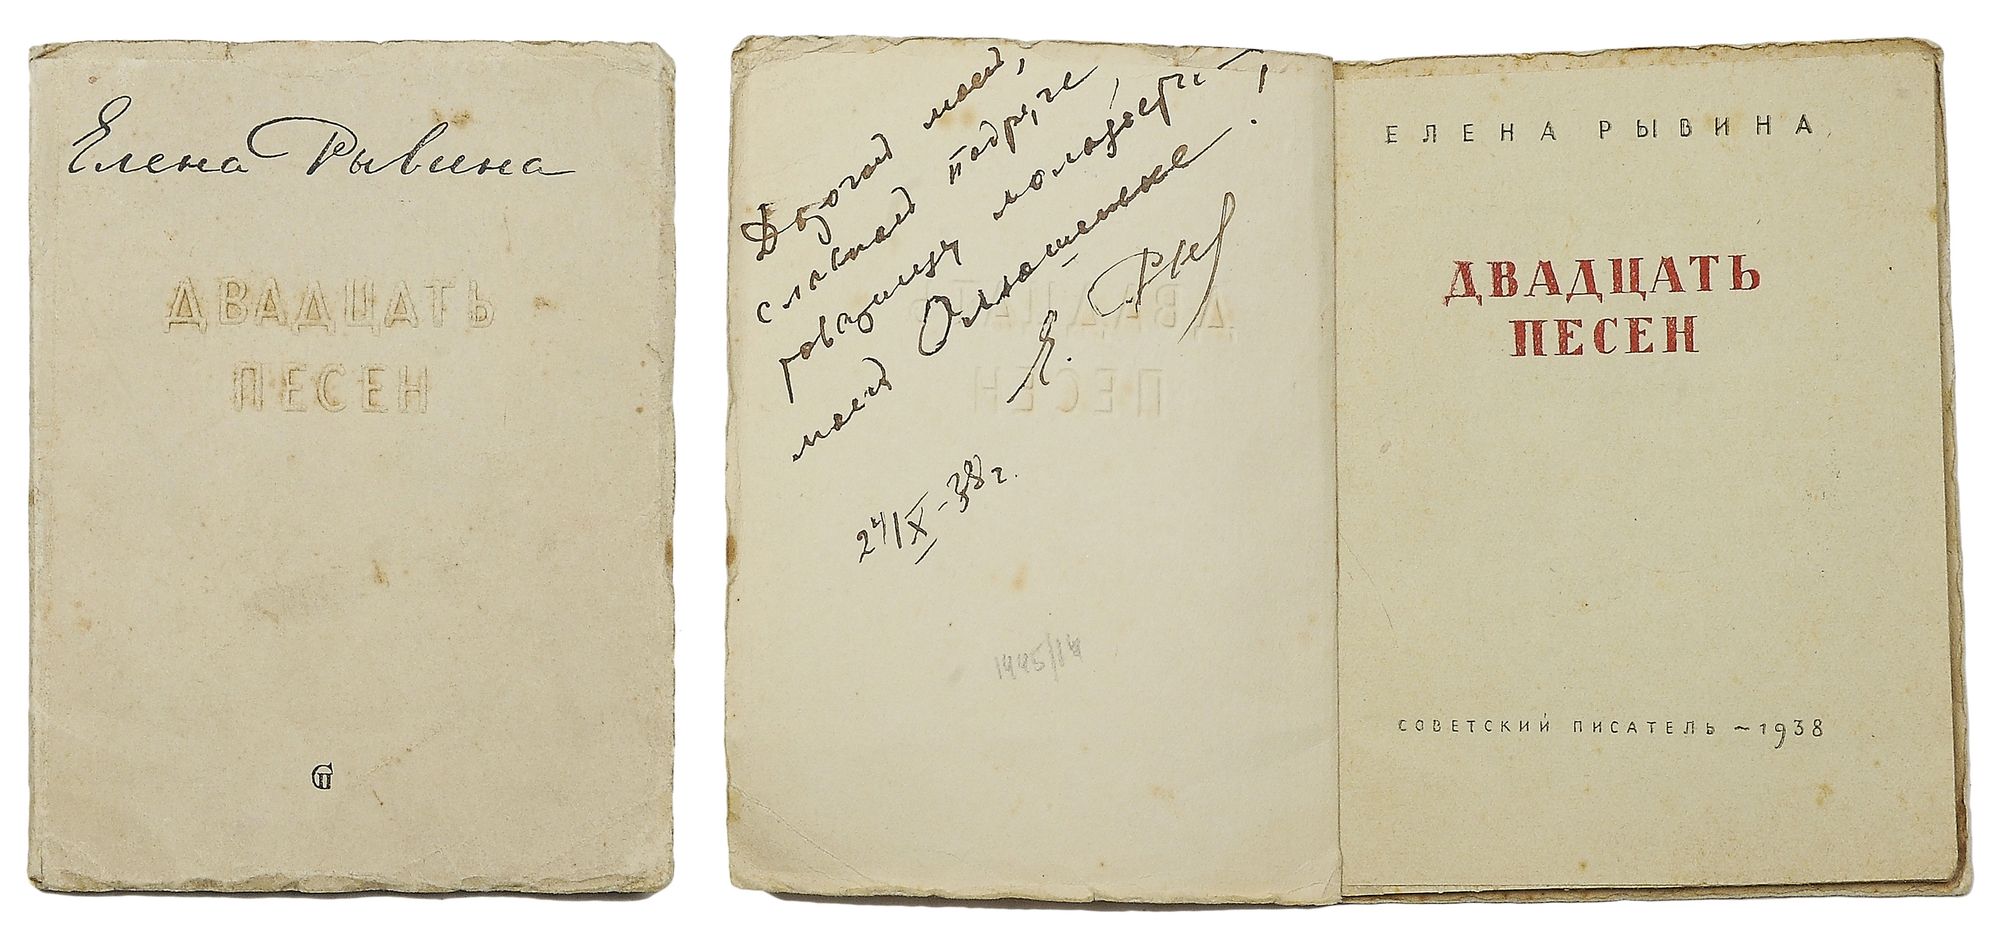 Елена Рывина
ДВАДЦАТЬ
ПЕСЕН
СП
Дорогой моей,
славной подруге
молодости
моей !
Е. Рыв
24/IX-38 г.
1995/14
ЕЛЕНА РЫВИНА
ДВАДЦАТЬ
ПЕСЕН
СОВЕТСКИЙ ПИСАТЕЛЬ ~ 1938